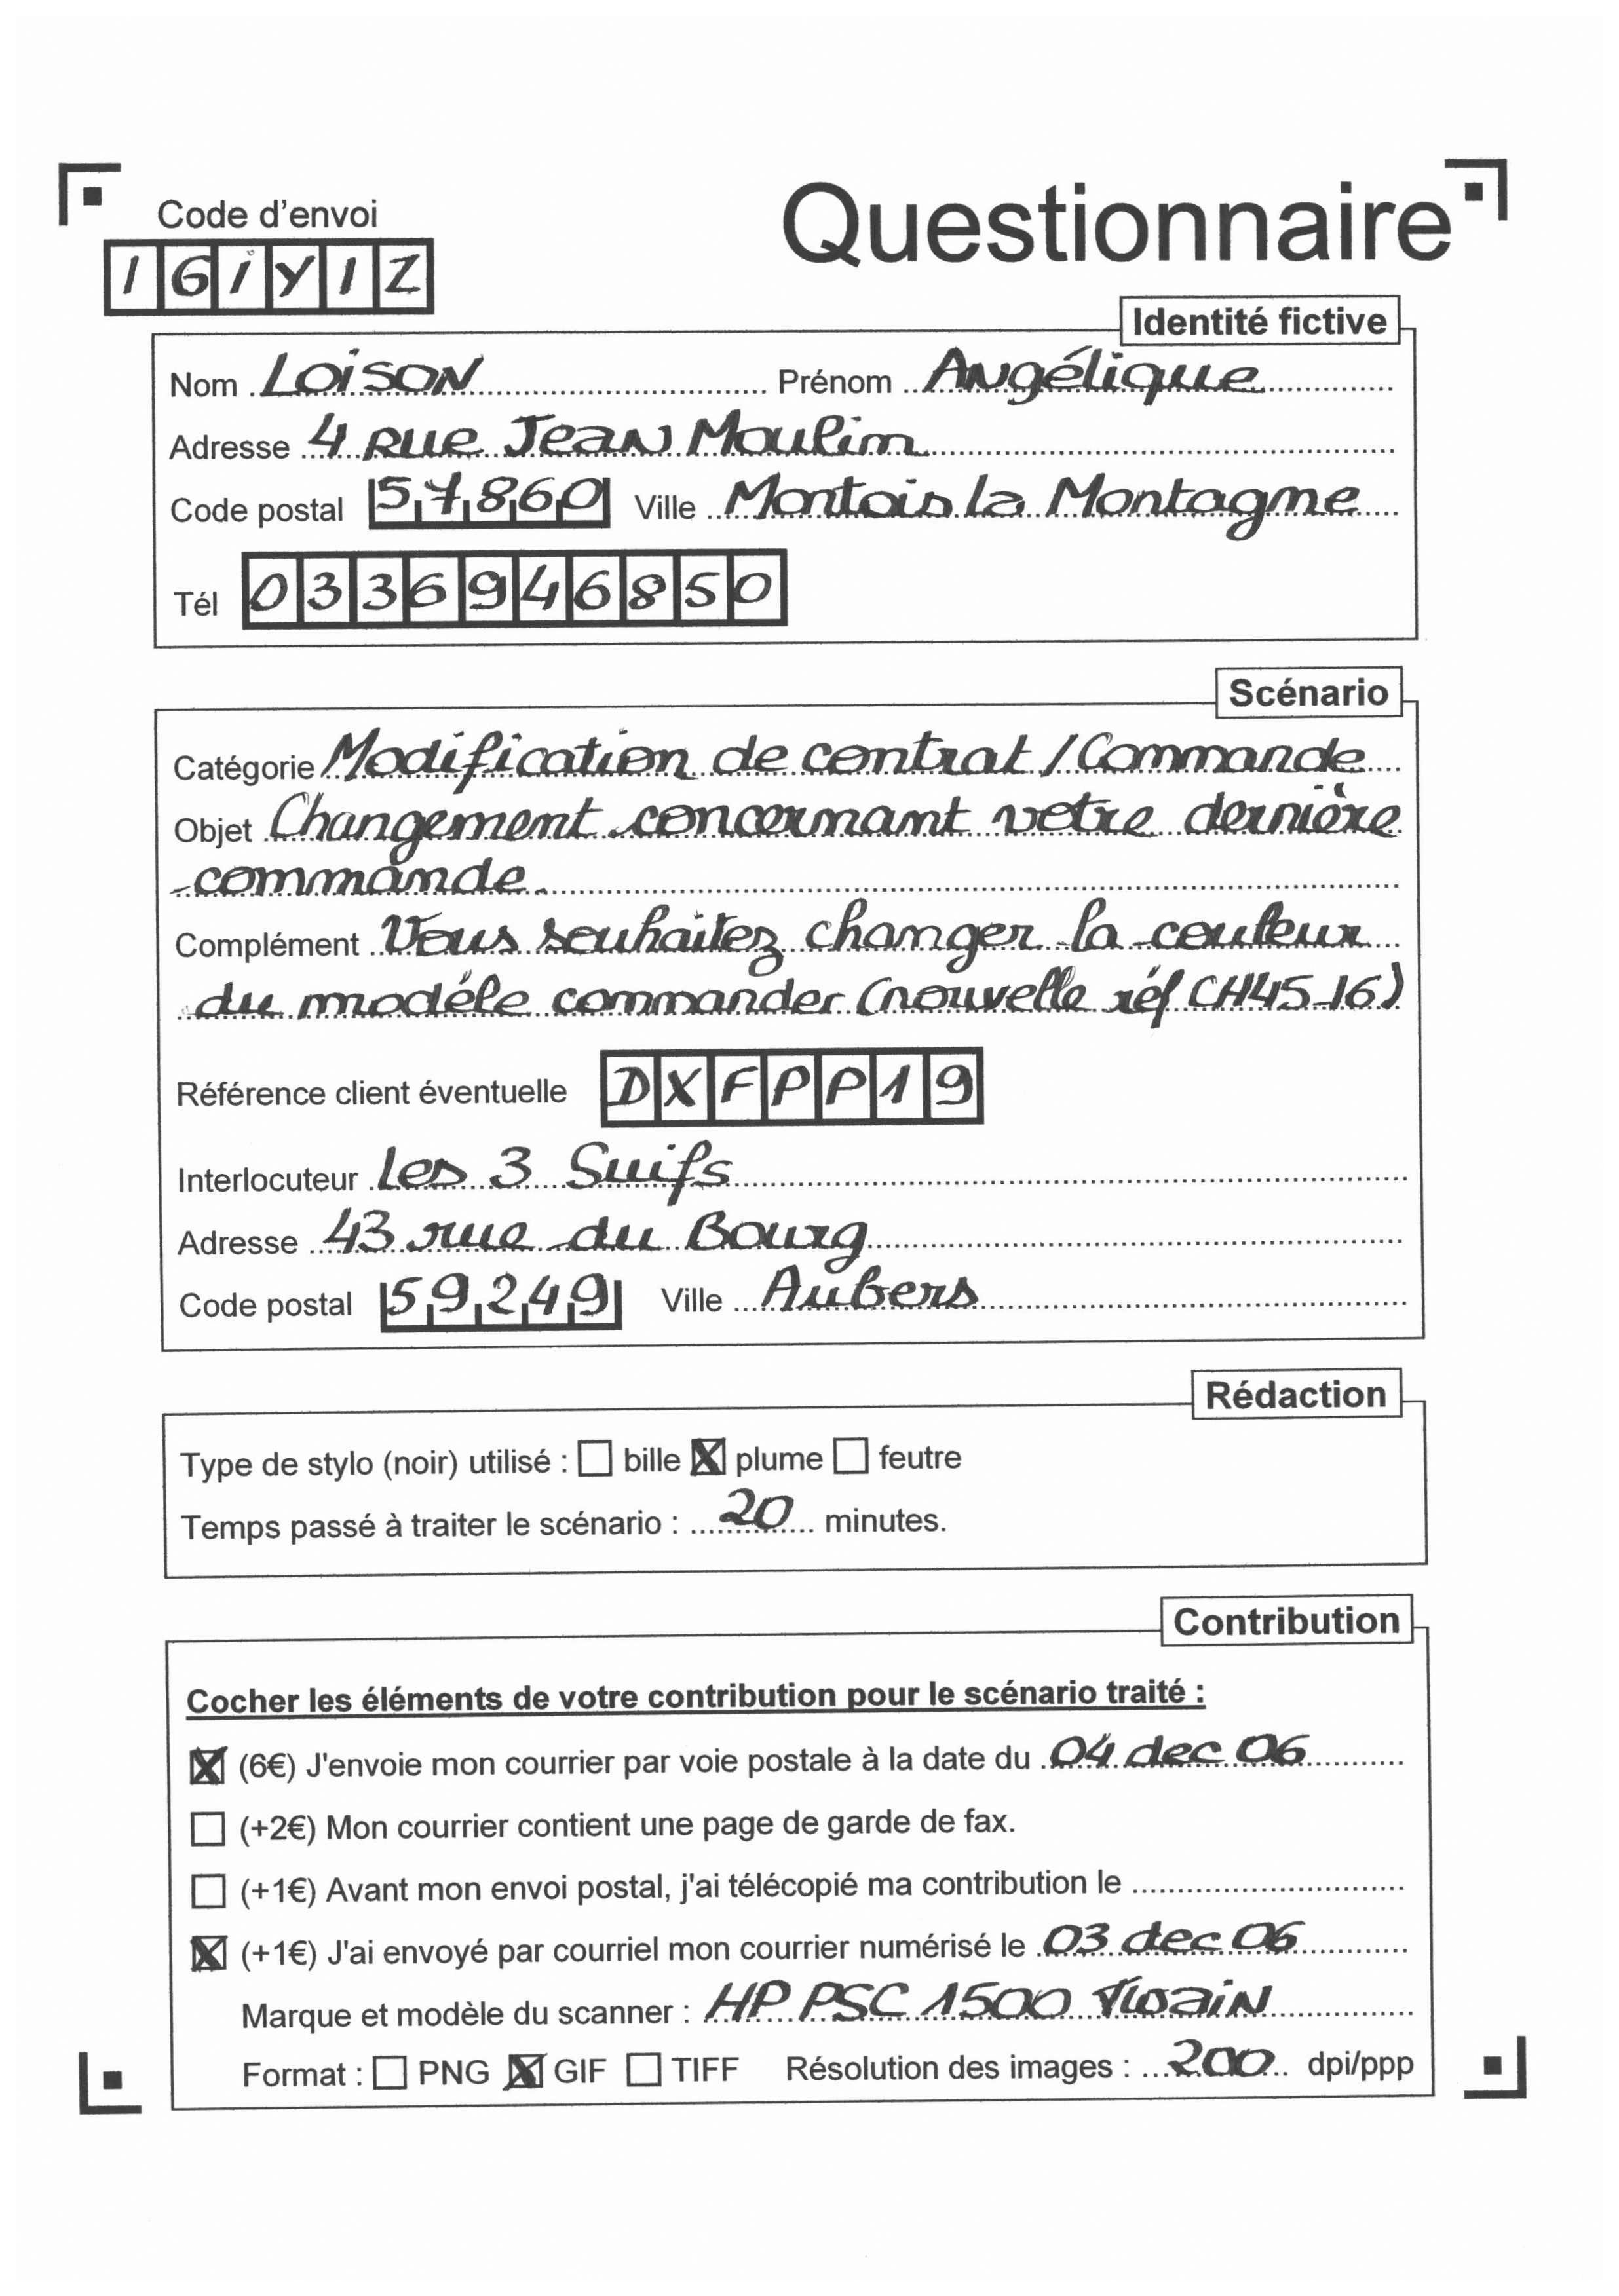 Code d'envoi
Questionnaire
1 G i Y 1 Z
Identité fictive
Nom Loison Prénom Angélique
Adresse 4 rue Jean Moulin
Code postal 57860 Ville Montois la Montagne
Tél 0336946850
Scénario
Catégorie Modification de contrat / Commande
Objet Changement concernant votre dernière
commande.
Complément Vous souhaitez changer la couleur
du modéle commander (nouvelle réf CH45_16)
Référence client éventuelle DXFPP19
Interlocuteur Les 3 Suifs
Adresse 43 rue du Bourg
Code postal 59249 Ville Aubers
Rédaction
Type de stylo (noir) utilisé : ☐ bille ☒ plume ☐ feutre
Temps passé à traiter le scénario : 20 minutes.
Contribution
Cocher les éléments de votre contribution pour le scénario traité :
☒ (6€) J'envoie mon courrier par voie postale à la date du 04 dec 06
☐ (+2€) Mon courrier contient une page de garde de fax.
☐ (+1€) Avant mon envoi postal, j'ai télécopié ma contribution le
☒ (+1€) J'ai envoyé par courriel mon courrier numérisé le 03 dec 06
Marque et modèle du scanner : HP PSC 1500 Twain
Format : ☐ PNG ☒ GIF ☐ TIFF Résolution des images : 200 dpi/ppp